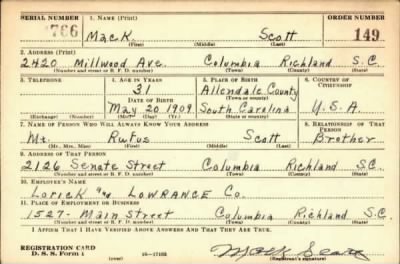 SERIAL NUMBER 1. NAME (Print) ORDER NUMBER
766 Mack Scott 149
(First) (Middle) (Last)
2. ADDRESS (Print)
2420 Millwood Ave. Columbia Richland S.C.
(Number and street or R. F. D. number) (Town) (County) (State)
3. TELEPHONE 4. AGE IN YEARS 5. PLACE OF BIRTH 6. COUNTRY OF CITIZENSHIP
31 Allendale County
DATE OF BIRTH (Town or county)
May 20 1909 South Carolina U.S.A.
(Exchange) (Number) (Mo.) (Day) (Yr.) (State or country)
7. NAME OF PERSON WHO WILL ALWAYS KNOW YOUR ADDRESS 8. RELATIONSHIP OF THAT PERSON
Mr. Rufus Scott Brother
(Mr., Mrs., Miss) (First) (Middle) (Last)
9. ADDRESS OF THAT PERSON
2126 Senate Street Columbia Richland S.C.
(Number and street or R. F. D. number) (Town) (County) (State)
10. EMPLOYER'S NAME
Lorick and Lowrance Co.
11. PLACE OF EMPLOYMENT OR BUSINESS
1527- Main Street Columbia Richland S.C.
(Number and street or R. F. D. number) (Town) (County) (State)
I AFFIRM THAT I HAVE VERIFIED ABOVE ANSWERS AND THAT THEY ARE TRUE.
REGISTRATION CARD
D. S. S. Form 1 16—17105 Mack Scott
(Registrant's signature)